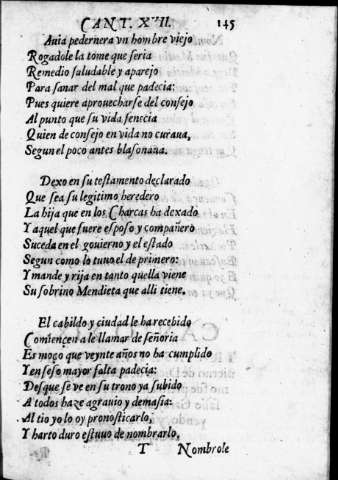 CANT. XVII. 145
Auia pedernera vn hombre viejo
Rogadole la tome que seria
Remedio saludable y aparejo
Para sanar del mal que padecia:
Pues quiere aprouecharse del consejo
Al punto que su vida fenecia
Quien de consejo en vida no curaua,
Segun el poco antes blasonaua.
Dexo en su testamento declarado
Que sea su legitimo heredero
La hija que en los Charcas ha dexado
Y aquel que fuere esposo y compañero
Suceda en el gouierno y el estado
Segun como lo tuuo el de primero:
Y mande y rija en tanto quella viene
Su sobrino Mendieta que alli tiene.
El cabildo y ciudad le ha recebido
Comiençen a le llamar de señoria
Es moço que veynte años no ha cumplido
Y en seso mayor falta padecia:
Desque se ve en su trono ya subido
A todos haze agrauio y demasia:
Al tio yo lo oy pronosticarlo,
Y harto duro estuuo de nombrarlo,
T Nombrole